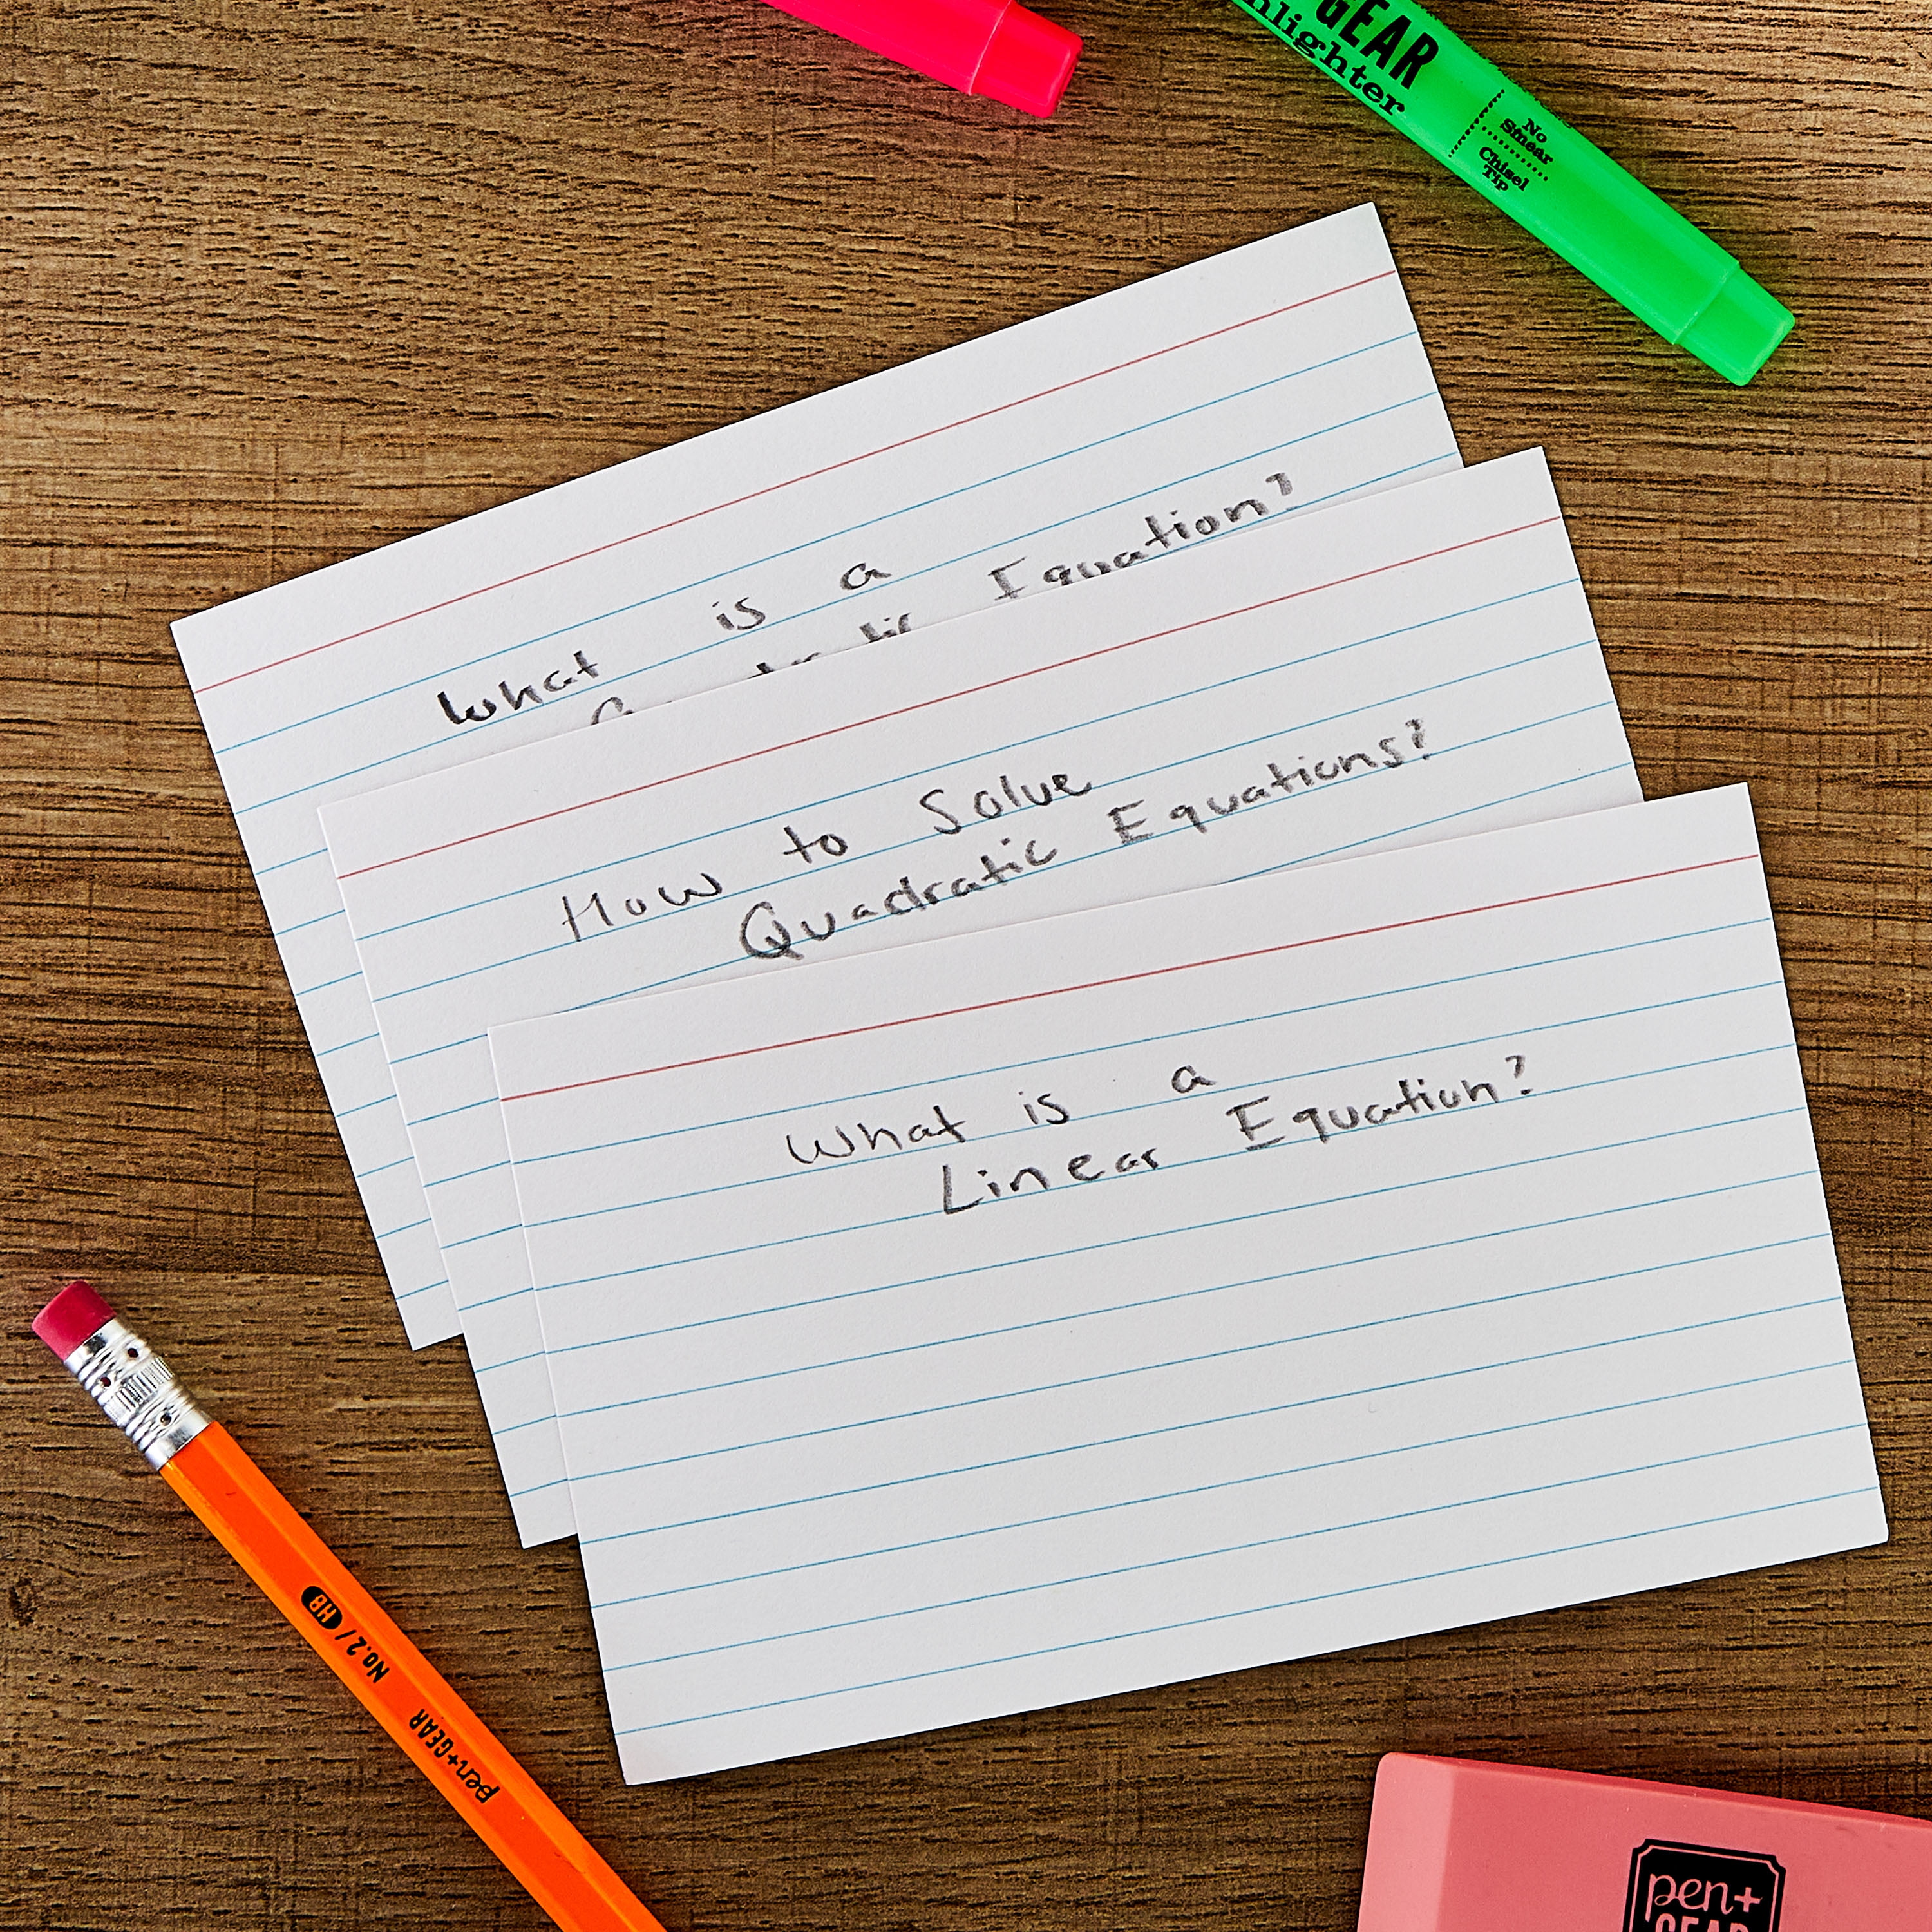 GEAR
hlighter
No
Smear
Chisel
Tip
What is a
Equation?
How to Solve
Quadratic Equations?
What is a
Linear Equation?
HB No.2/ pen+GEAR
pen+
GEAR